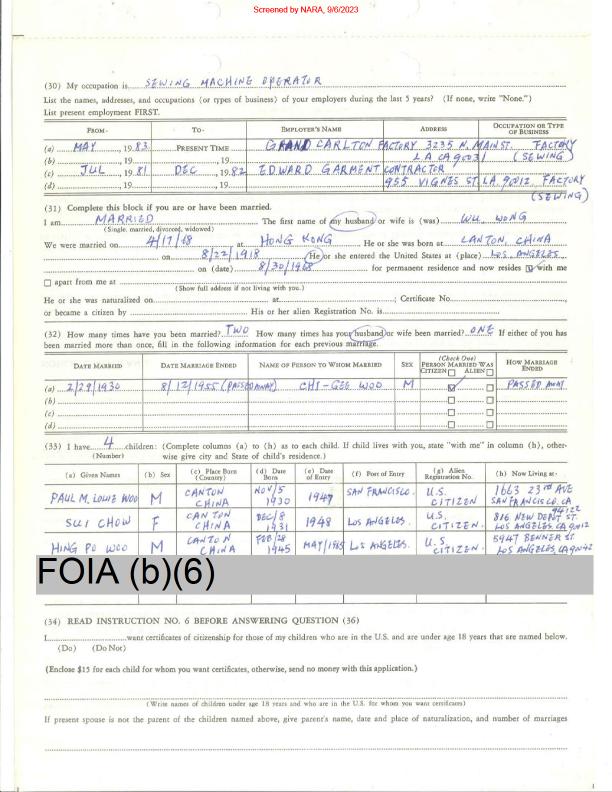 Screened by NARA, 9/6/2023
(30) My occupation is SEWING MACHINE OPERATOR
List the names, addresses, and occupations (or types of business) of your employers during the last 5 years? (If none, write "None.")
List present employment FIRST.
FROM- TO- EMPLOYER'S NAME ADDRESS OCCUPATION OR TYPE OF BUSINESS
(a) MAY, 1983 PRESENT TIME GRAND CARLTON FACTORY 3235 N. MAIN ST. FACTORY
(b) , 19 , 19 LA CA 90031 (SEWING)
(c) JUL, 1981 DEC, 1982 EDWARD GARMENT CONTRACTOR
(d) , 19 , 19 955 VIGNES ST. LA. 90012. FACTORY
(SEWING)
(31) Complete this block if you are or have been married.
I am MARRIED The first name of my husband or wife is (was) WU WONG
(Single, married, divorced, widowed)
We were married on 4/17/68 at HONG KONG He or she was born at CANTON, CHINA
on 8/22/1918 He or she entered the United States at (place) LOS ANGELES
on (date) 8/30/1968 for permanent residence and now resides with me
apart from me at
(Show full address if not living with you.)
He or she was naturalized on at ; Certificate No.
or became a citizen by His or her alien Registration No. is
(32) How many times have you been married? TWO How many times has your husband or wife been married? ONE If either of you has
been married more than once, fill in the following information for each previous marriage.
DATE MARRIED DATE MARRIAGE ENDED NAME OF PERSON TO WHOM MARRIED SEX (Check One) PERSON MARRIED WAS CITIZEN ALIEN HOW MARRIAGE ENDED
(a) 2/29/1930 8/12/1955 (PASSED AWAY) CHI-GEE WOO M PASSED AWAY
(b)
(c)
(d)
(33) I have 4 children: (Complete columns (a) to (h) as to each child. If child lives with you, state "with me" in column (h), other-
(Number) wise give city and State of child's residence.)
(a) Given Names (b) Sex (c) Place Born (Country) (d) Date Born (e) Date of Entry (f) Port of Entry (g) Alien Registration No. (h) Now Living at-
PAUL M. LOUIE WOO M CANTON CHINA NOV/5 1930 1947 SAN FRANCISCO. U.S. CITIZEN 1663 23RD AVE SAN FRANCISCO. CA 94122
SUI CHOW F CANTON CHINA DEC/8 1931 1948 LOS ANGELES. U.S. CITIZEN. 816 NEW DEPOT ST. LOS ANGELES, CA 90012
HING PO WOO M CANTON CHINA FEB/28 1945 MAY/1965 LOS ANGELES. U.S. CITIZEN. 5947 BENNER ST LOS ANGELES, CA 90042
FOIA (b)(6)
(34) READ INSTRUCTION NO. 6 BEFORE ANSWERING QUESTION (36)
I want certificates of citizenship for those of my children who are in the U.S. and are under age 18 years that are named below.
(Do) (Do Not)
(Enclose $15 for each child for whom you want certificates, otherwise, send no money with this application.)
(Write names of children under age 18 years and who are in the U.S. for whom you want certificates)
If present spouse is not the parent of the children named above, give parent's name, date and place of naturalization, and number of marriages